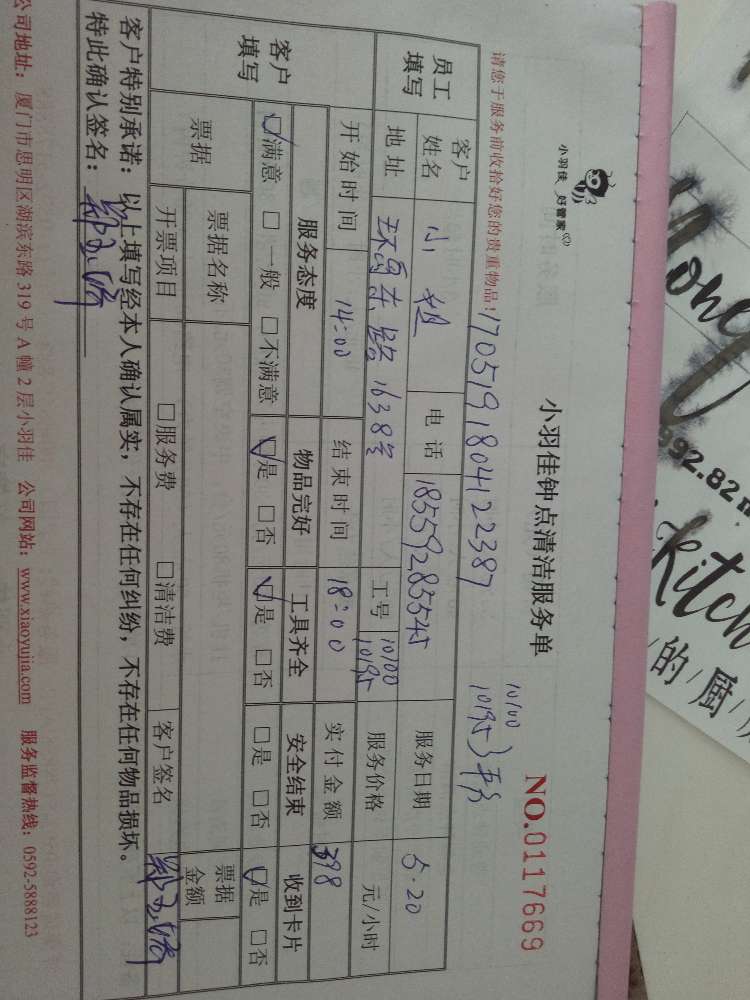 小羽佳 好管家
小羽佳钟点清洁服务单
NO.0117669
请您于服务前收拾好您的贵重物品!
170519180412 2387
10100
10195
员工填写
客户姓名 小姐 电话 18559285545 服务日期 5.20
地址 环岛东路1638号 工号 10100 10195 服务价格 元/小时
客户填写
开始时间 14:00 结束时间 18:00 实付金额 398
服务态度 物品完好 工具齐全 安全结束 收到卡片
☑满意 □一般 □不满意 ☑是 □否 ☑是 □否 □是 □否 ☑是 □否
票据 票据名称 票据金额
开票项目 □服务费 □清洁费 客户签名
客户特别承诺:以上填写经本人确认属实,不存在任何纠纷,不存在任何物品损坏。
特此确认签名:
公司地址:厦门市思明区湖滨东路319号A幢2层小羽佳 公司网站:www.xiaoyujia.com 服务监督热线:0592-5888123
392.82
kitch
的厨